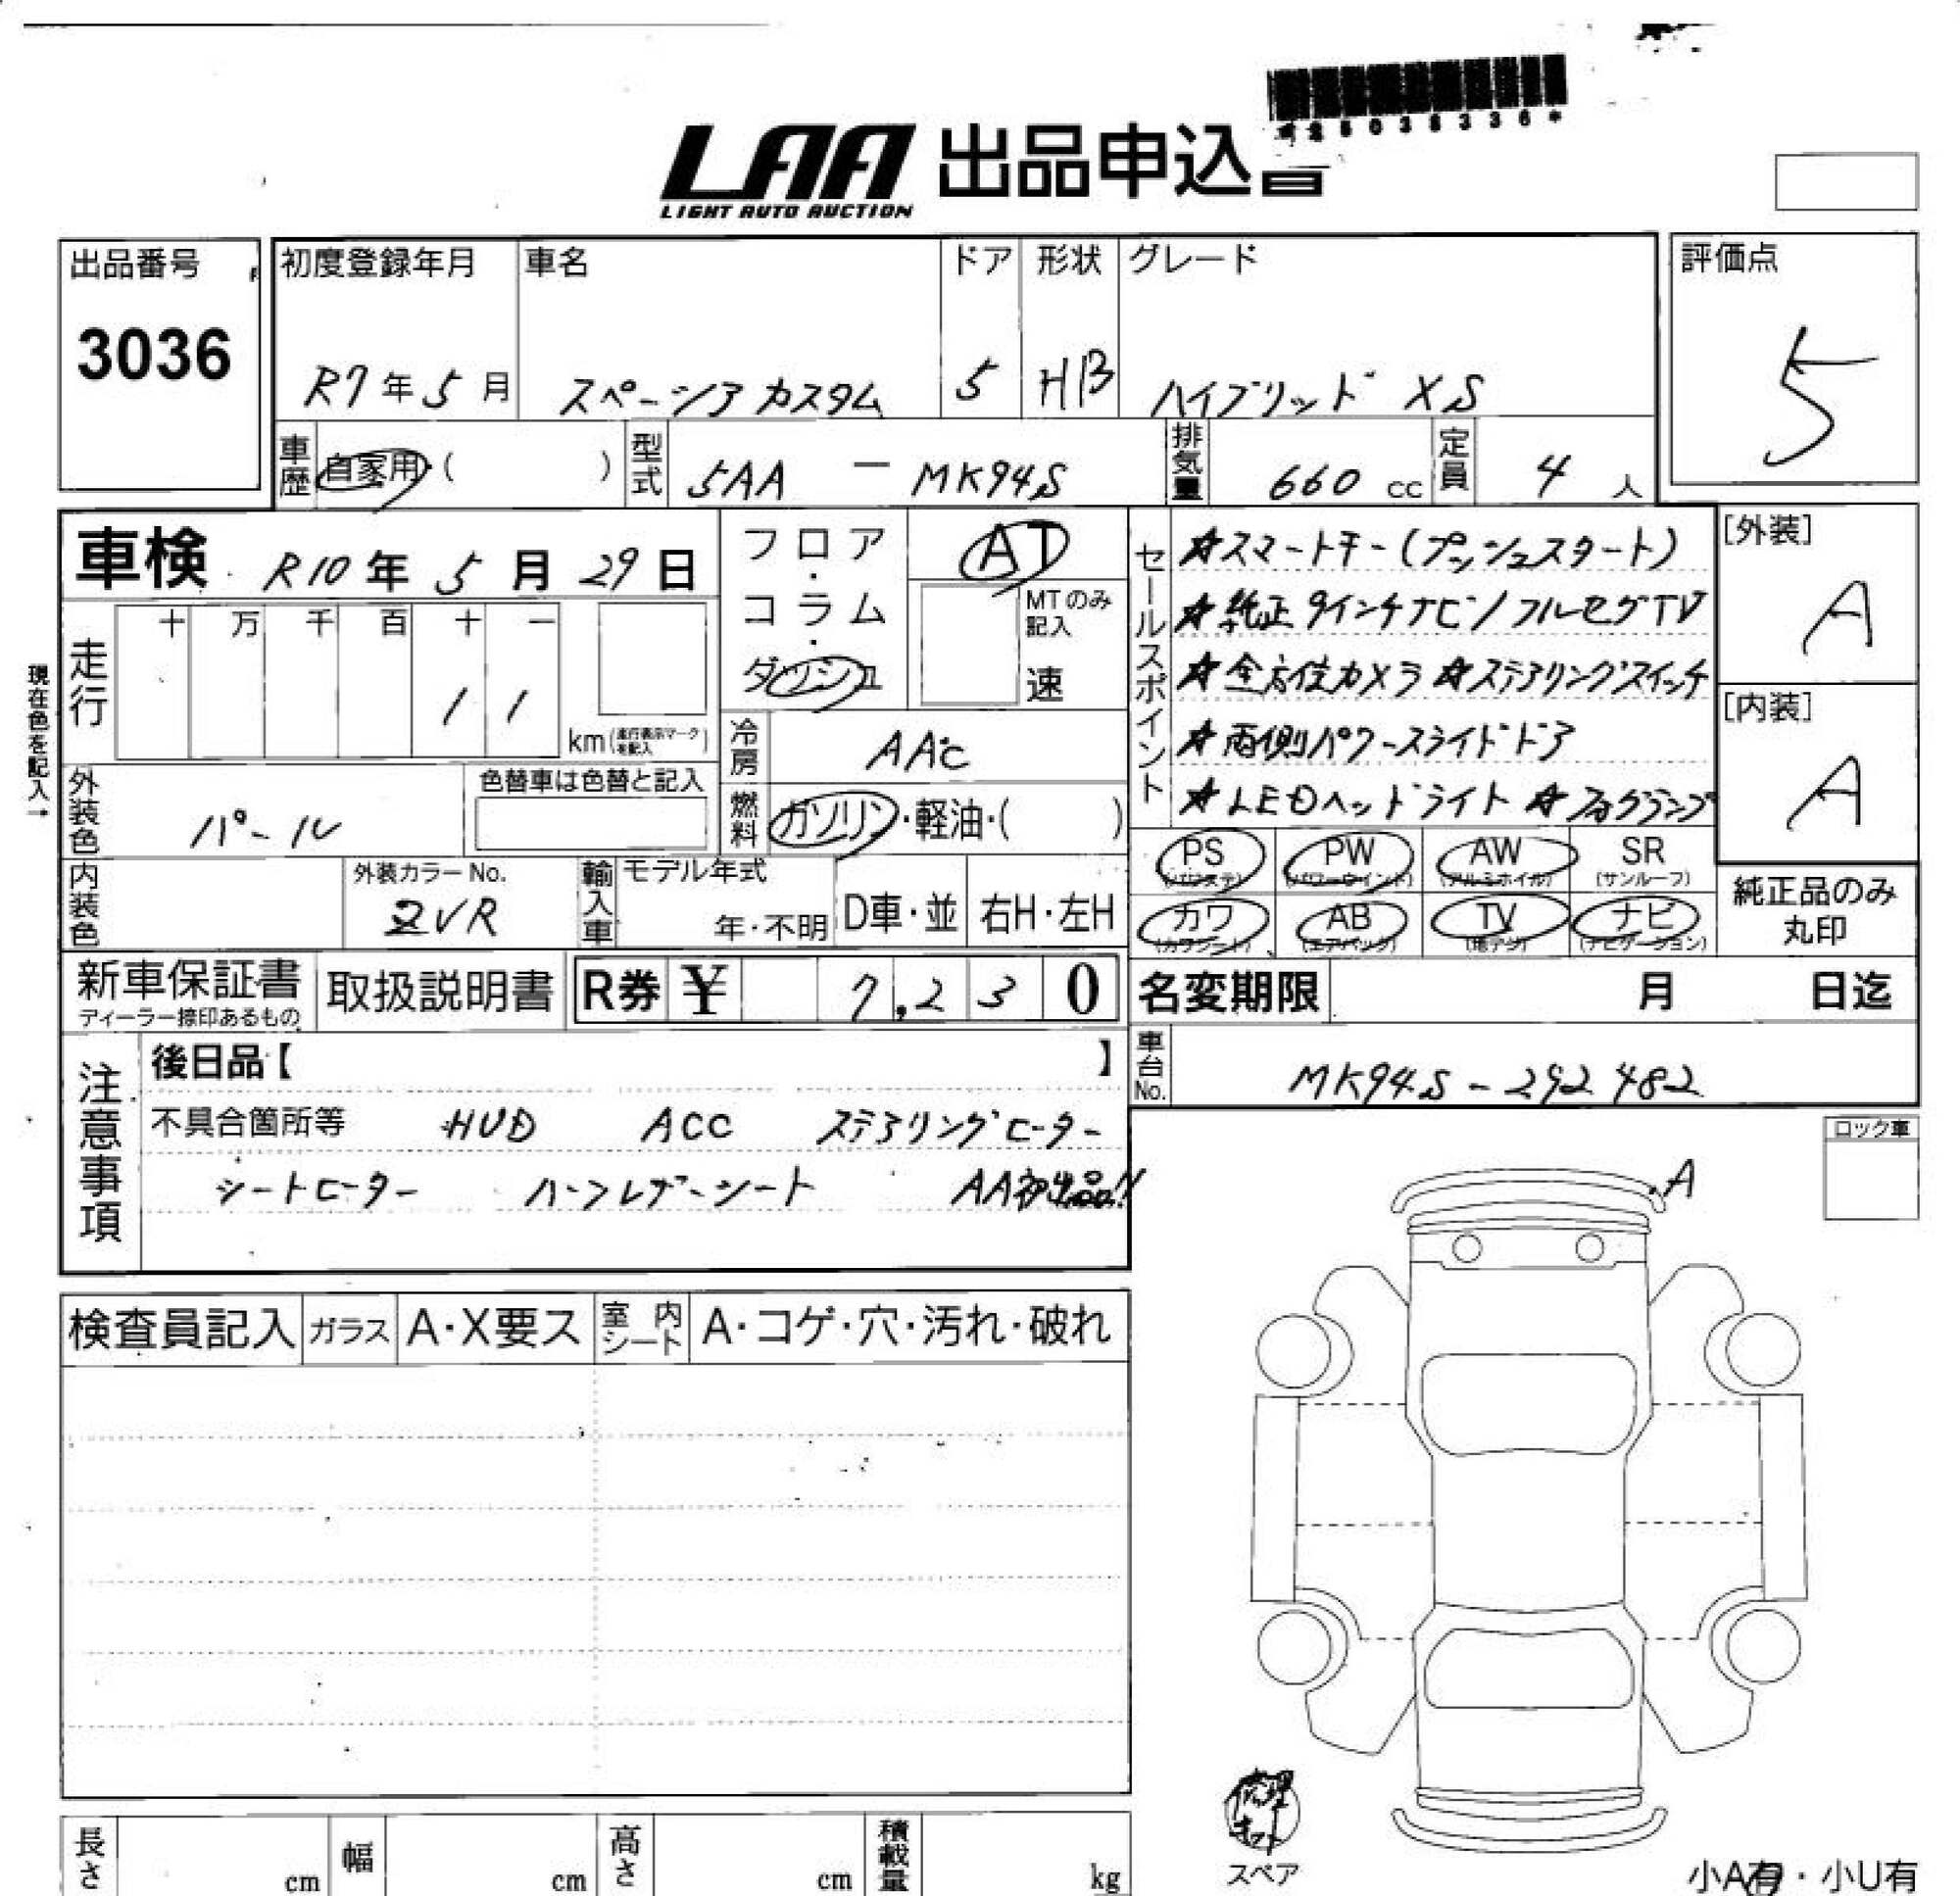 *25035336*
LAA 出品申込書
LIGHT AUTO AUCTION
出品番号
3036
初度登録年月
R7年5月
車名
スペーシア カスタム
ドア
5
形状
HB
グレード
ハイブリッド XS
評価点
5
車歴
自家用・( )
型式
5AA - MK94S
排気量
660 cc
定員
4 人
車検 R10年5月29日
フロア・コラム・ダッシュ
AT
MTのみ記入
速
セールスポイント
☆スマートキー(プッシュスタート)
☆純正9インチナビ/フルセグTV
☆全方位カメラ ☆ステアリングスイッチ
☆両側パワースライドドア
☆LEDヘッドライト ☆フォグランプ
[外装]
A
[内装]
A
現在色を記入→
走行
十 万 千 百 十 一
1 1
km(走行表示マークを記入)
冷房
AAC
外装色
パール
色替車は色替と記入
燃料
ガソリン・軽油・( )
PS (パワステ)
PW (パワーウインド)
AW (アルミホイル)
SR (サンルーフ)
カワ (カワシート)
AB (エアバック)
TV (地デジ)
ナビ (ナビゲーション)
純正品のみ丸印
内装色
外装カラーNo.
ZVR
輸入車
モデル年式
年・不明
D車・並
右H・左H
新車保証書
ディーラー捺印あるもの
取扱説明書
R券 ¥ 7,230
名変期限 月 日迄
車台No.
MK94S-292482
注意事項
後日品【 】
不具合箇所等 HUD ACC ステアリングヒーター
シートヒーター ハーフレザーシート AA初出品!!
ロック車
A
検査員記入
ガラス
A・X要ス
室内シート
A・コゲ・穴・汚れ・破れ
修理キット
スペア
長さ cm
幅 cm
高さ cm
積載量 kg
小A有・小U有